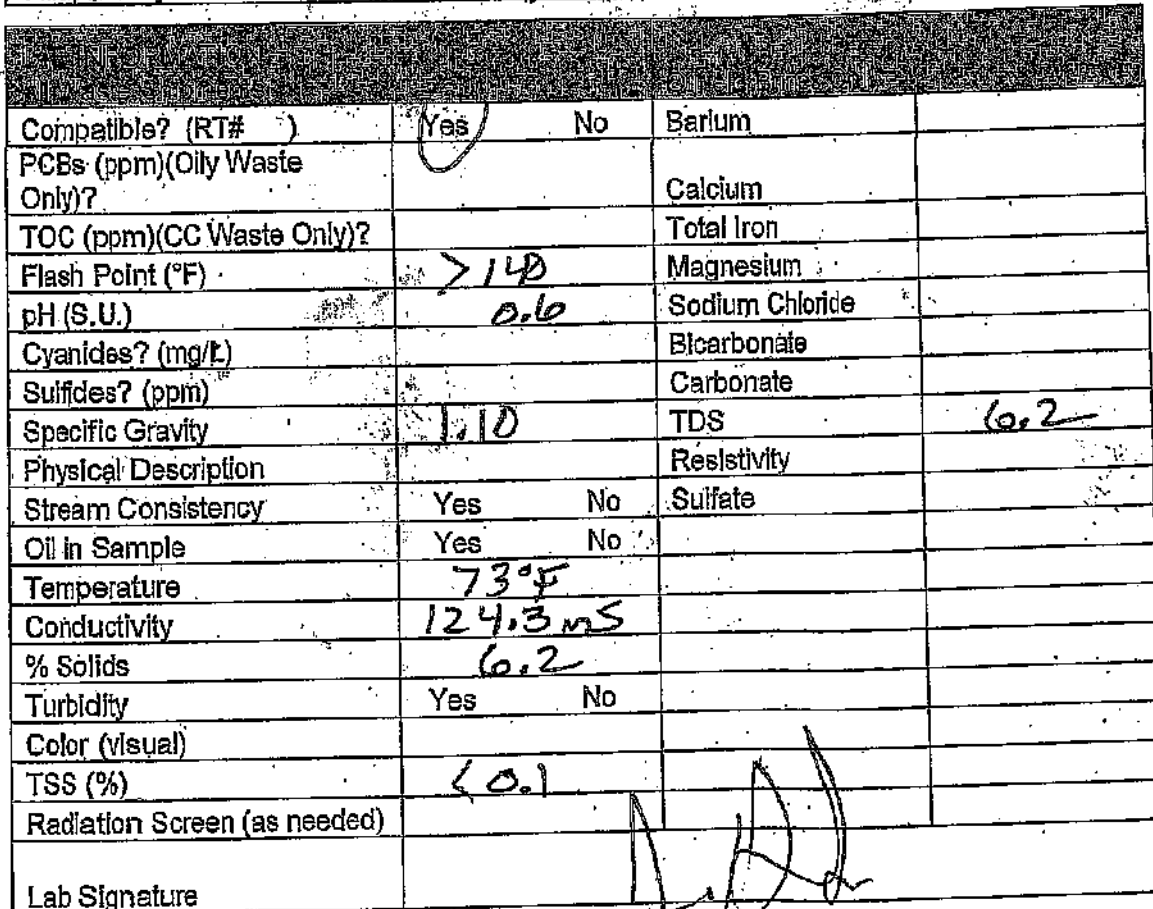 INFORMATION
Compatible? (RT# ) Yes No Barium
PCBs (ppm)(Oily Waste
Only)? Calcium
TOC (ppm)(CC Waste Only)? Total Iron
Flash Point (°F) >140 Magnesium
pH (S.U.) 0.6 Sodium Chloride
Cyanides? (mg/L) Bicarbonate
Sulfides? (ppm) Carbonate
Specific Gravity 1.10 TDS 6.2
Physical Description Resistivity
Stream Consistency Yes No Sulfate
Oil in Sample Yes No
Temperature 73°F
Conductivity 124.3 mS
% Solids 6.2
Turbidity Yes No
Color (visual)
TSS (%) <0.1
Radiation Screen (as needed)
Lab Signature